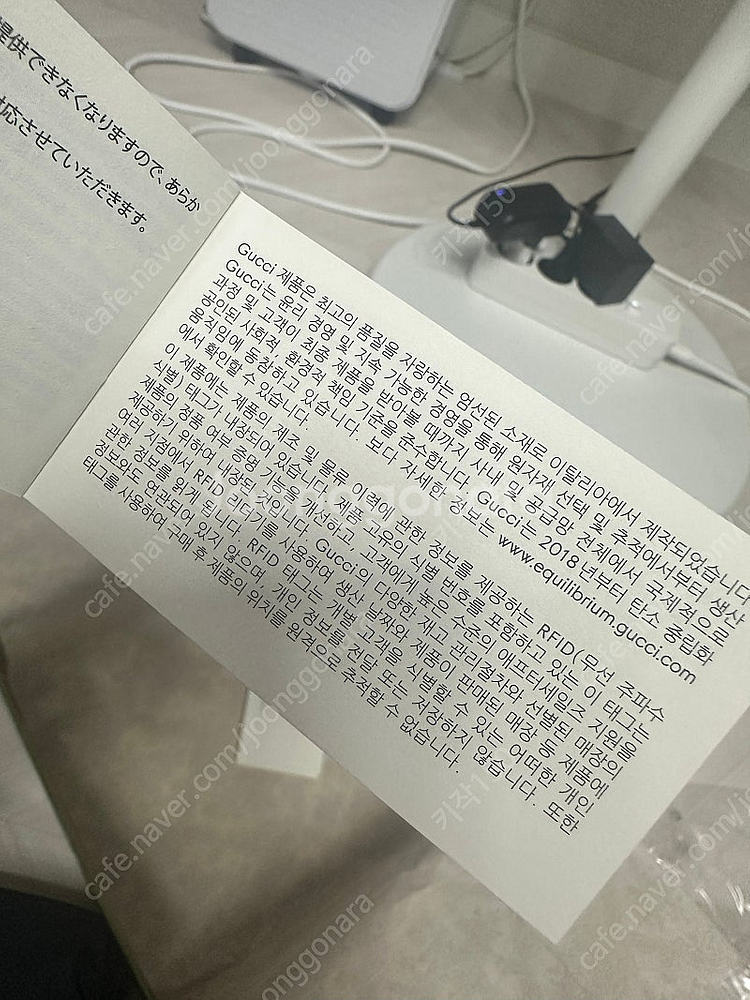 提供できなくなりますので、あらか
対応させていただきます。
Gucci 제품은 최고의 품질을 자랑하는 엄선된 소재로 이탈리아에서 제작되었습니다.
Gucci는 윤리 경영 및 지속 가능한 경영을 통해 원자재 선택 및 추적에서부터 생산
과정 및 고객이 최종 제품을 받아볼 때까지 사내 및 공급망 전체에서 국제적으로
공인된 사회적, 환경적 책임 기준을 준수합니다. Gucci는 2018년부터 탄소 중립화
움직임에 동참하고 있습니다. 보다 자세한 정보는 www.equilibrium.gucci.com
에서 확인할 수 있습니다.
이 제품에는 제품의 제조 및 물류 이력에 관한 정보를 제공하는 RFID(무선 주파수
식별) 태그가 내장되어 있습니다. 제품 고유의 식별 번호를 포함하고 있는 이 태그는
제품의 정품 여부 증명 기능을 개선하고, 고객에게 높은 수준의 애프터세일즈 지원을
제공하기 위하여 내장된 것입니다. Gucci의 다양한 재고 관리절차와 선별된 매장의
여러 지점에서 RFID 리더기를 사용하여 생산 날짜와 제품이 판매된 매장 등 제품에
관한 정보를 읽게 됩니다. RFID 태그는 개별 고객을 식별할 수 있는 어떠한 개인
정보와도 연관되어 있지 않으며, 개인 정보를 전달 또는 저장하지 않습니다. 또한
태그를 사용하여 구매 후 제품의 위치를 원격으로 추적할 수 없습니다.
joonggonara
cafe.naver.com/joonggonara
키작150